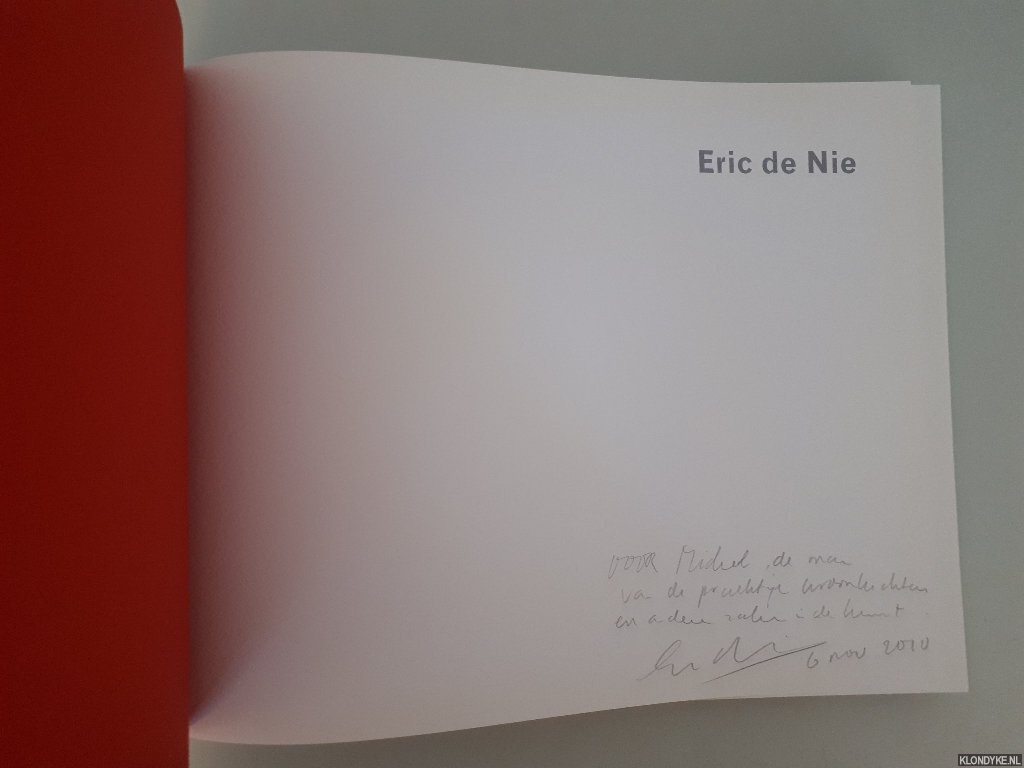 Eric de Nie
voor Michel, de man
van de prachtige kroonluchters
en andere zaken in de kunst.
6 nov 2010
KLONDYKE.NL